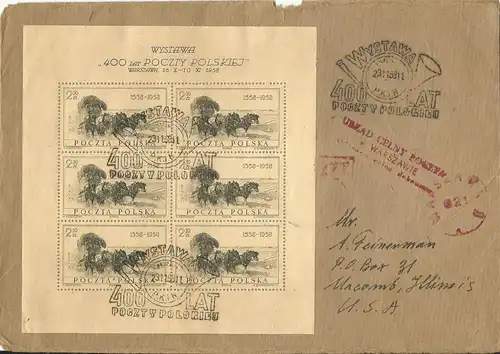 WYSTAWA
„400 LAT POCZTY POLSKIEJ"
WARSZAWA 25 X-10 XI 1958
2 50 ZŁ 1558-1958
POCZTA POLSKA
2 50 ZŁ 1558-1958
POCZTA POLSKA
WYSTAWA
400 LAT
POCZTY POLSKIEJ
2 50 ZŁ 1558-1958
POCZTA POLSKA
2 50 ZŁ 1558-1958
POCZTA POLSKA
2 50 ZŁ 1558-1958
POCZTA POLSKA
2 50 ZŁ 1558-1958
POCZTA POLSKA
WYSTAWA
400 LAT
POCZTY POLSKIEJ
WYSTAWA
400 LAT
POCZTY POLSKIEJ
URZĄD CELNY POCZTOWY
w WARSZAWIE
Mr.
A. Feinerman
P.O. Box 31
Macomb, Illinois
U.S.A